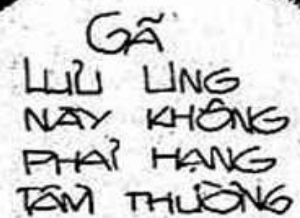 GÃ
LƯU LINH
NÀY KHÔNG
PHẢI HẠNG
TẦM THƯỜNG